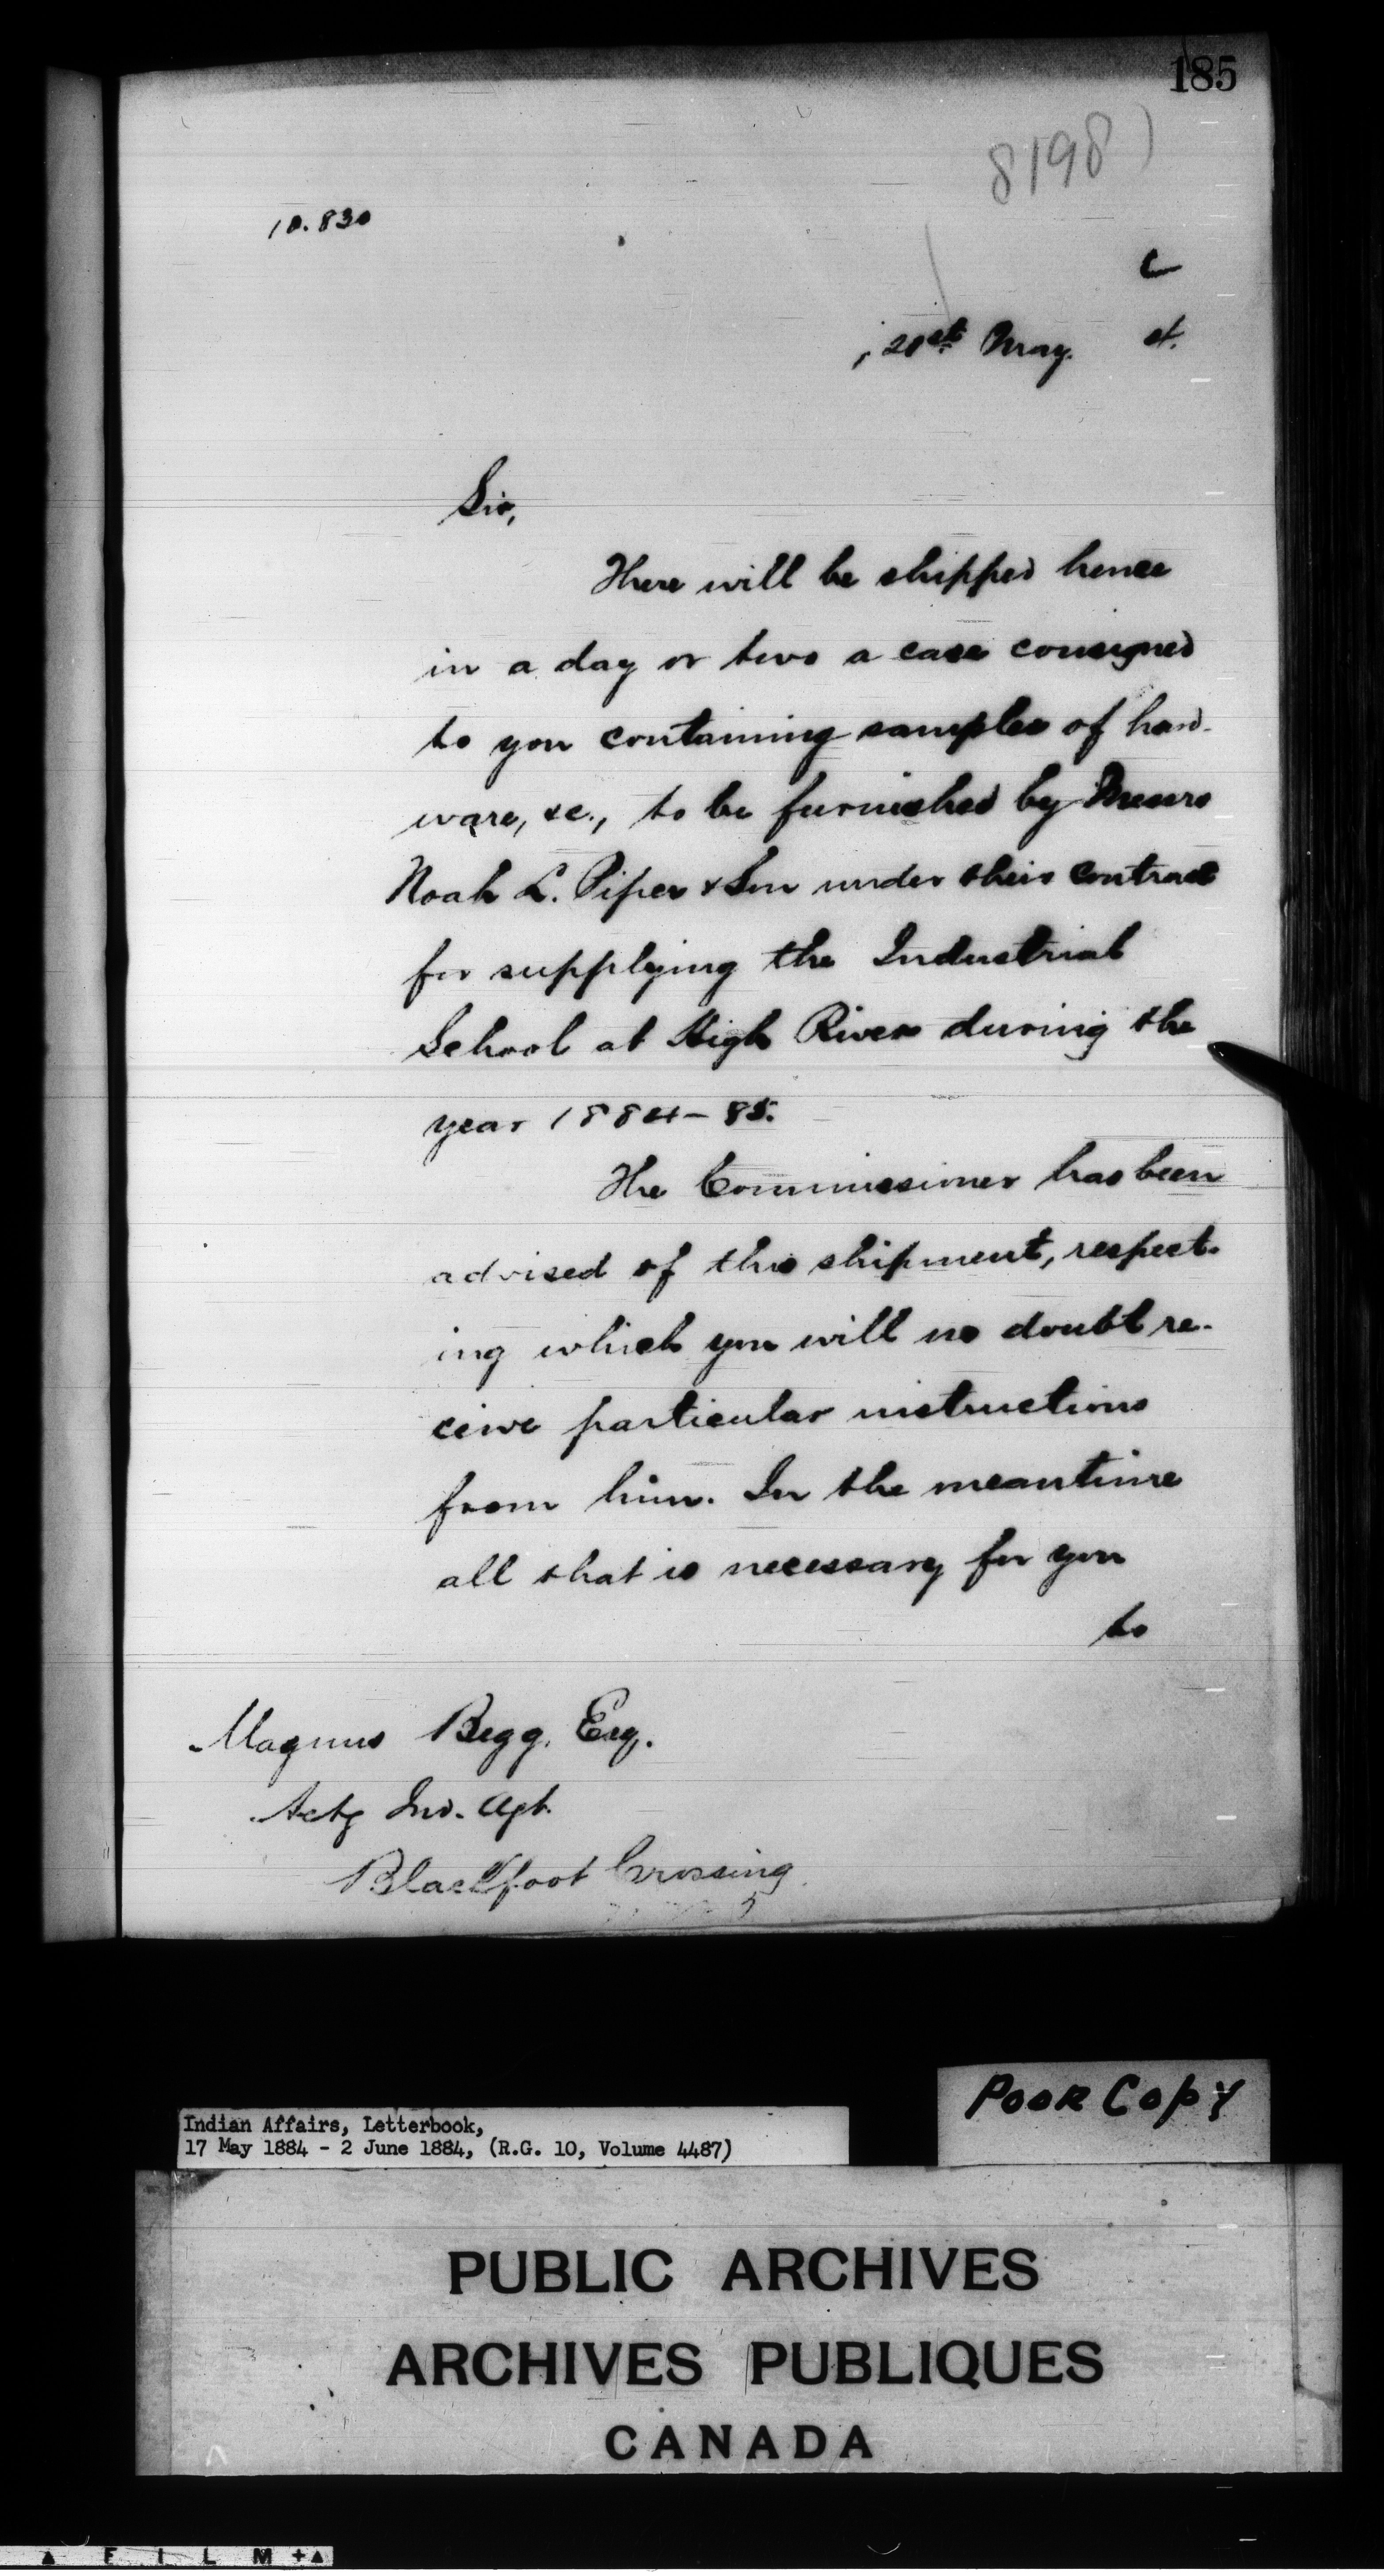 185
8198)
10.830
C
21st May. 4.
Sir,
There will be shipped hence
in a day or two a case consigned
to you containing samples of hard-
ware, &c., to be furnished by Messrs
Noah L. Piper & Son under their contract
for supplying the Industrial
School at High River during the
year 1884-85.
The Commissioner has been
advised of this shipment, respect-
ing which you will no doubt re-
ceive particular instructions
from him. In the meantime
all that is necessary for you
to
Magnus Begg, Esq.
Actg Ind. Agt.
Blackfoot Crossing
POOR COPY
Indian Affairs, Letterbook,
17 May 1884 - 2 June 1884, (R.G. 10, Volume 4487)
PUBLIC ARCHIVES
ARCHIVES PUBLIQUES
CANADA
FILM